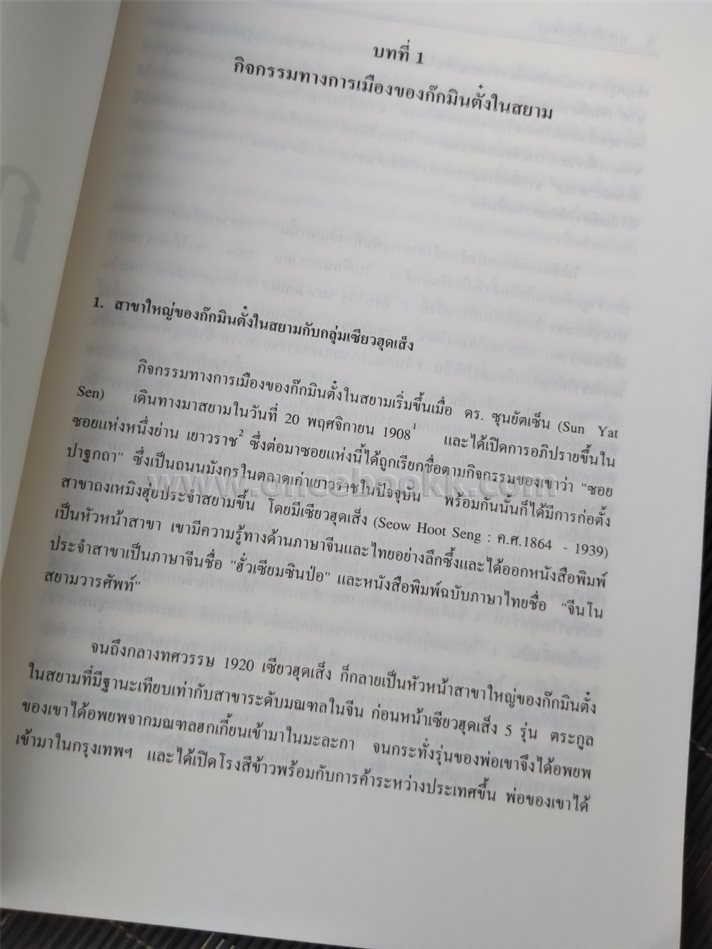 บทที่ 1
กิจกรรมทางการเมืองของก๊กมินตั๋งในสยาม
1. สาขาใหญ่ของก๊กมินตั๋งในสยามกับกลุ่มเซียวฮุดเส็ง
กิจกรรมทางการเมืองของก๊กมินตั๋งในสยามเริ่มขึ้นเมื่อ ดร. ซุนยัตเซ็น (Sun Yat
Sen) เดินทางมาสยามในวันที่ 20 พฤศจิกายน 1908¹ และได้เปิดการอภิปรายขึ้นใน
ซอยแห่งหนึ่งย่าน เยาวราช² ซึ่งต่อมาซอยแห่งนี้ได้ถูกเรียกชื่อตามกิจกรรมของเขาว่า "ซอย
ปาฐกถา" ซึ่งเป็นถนนมังกรในตลาดเก่าเยาวราชในปัจจุบัน พร้อมกันนั้นก็ได้มีการก่อตั้ง
สาขาถงเหมิงฮุ่ยประจำสยามขึ้น โดยมีเซียวฮุดเส็ง (Seow Hoot Seng : ค.ศ.1864 - 1939)
เป็นหัวหน้าสาขา เขามีความรู้ทางด้านภาษาจีนและไทยอย่างลึกซึ้งและได้ออกหนังสือพิมพ์
ประจำสาขาเป็นภาษาจีนชื่อ "ฮั่วเซียมซินป่อ" และหนังสือพิมพ์ฉบับภาษาไทยชื่อ "จีนโน
สยามวารศัพท์"
จนถึงกลางทศวรรษ 1920 เซียวฮุดเส็ง ก็กลายเป็นหัวหน้าสาขาใหญ่ของก๊กมินตั๋ง
ในสยามที่มีฐานะเทียบเท่ากับสาขาระดับมณฑลในจีน ก่อนหน้าเซียวฮุดเส็ง 5 รุ่น ตระกูล
ของเขาได้อพยพจากมณฑลฮกเกี้ยนเข้ามาในมะละกา จนกระทั่งรุ่นของพ่อเขาจึงได้อพยพ
เข้ามาในกรุงเทพฯ และได้เปิดโรงสีข้าวพร้อมกับการค้าระหว่างประเทศขึ้น พ่อของเขาได้